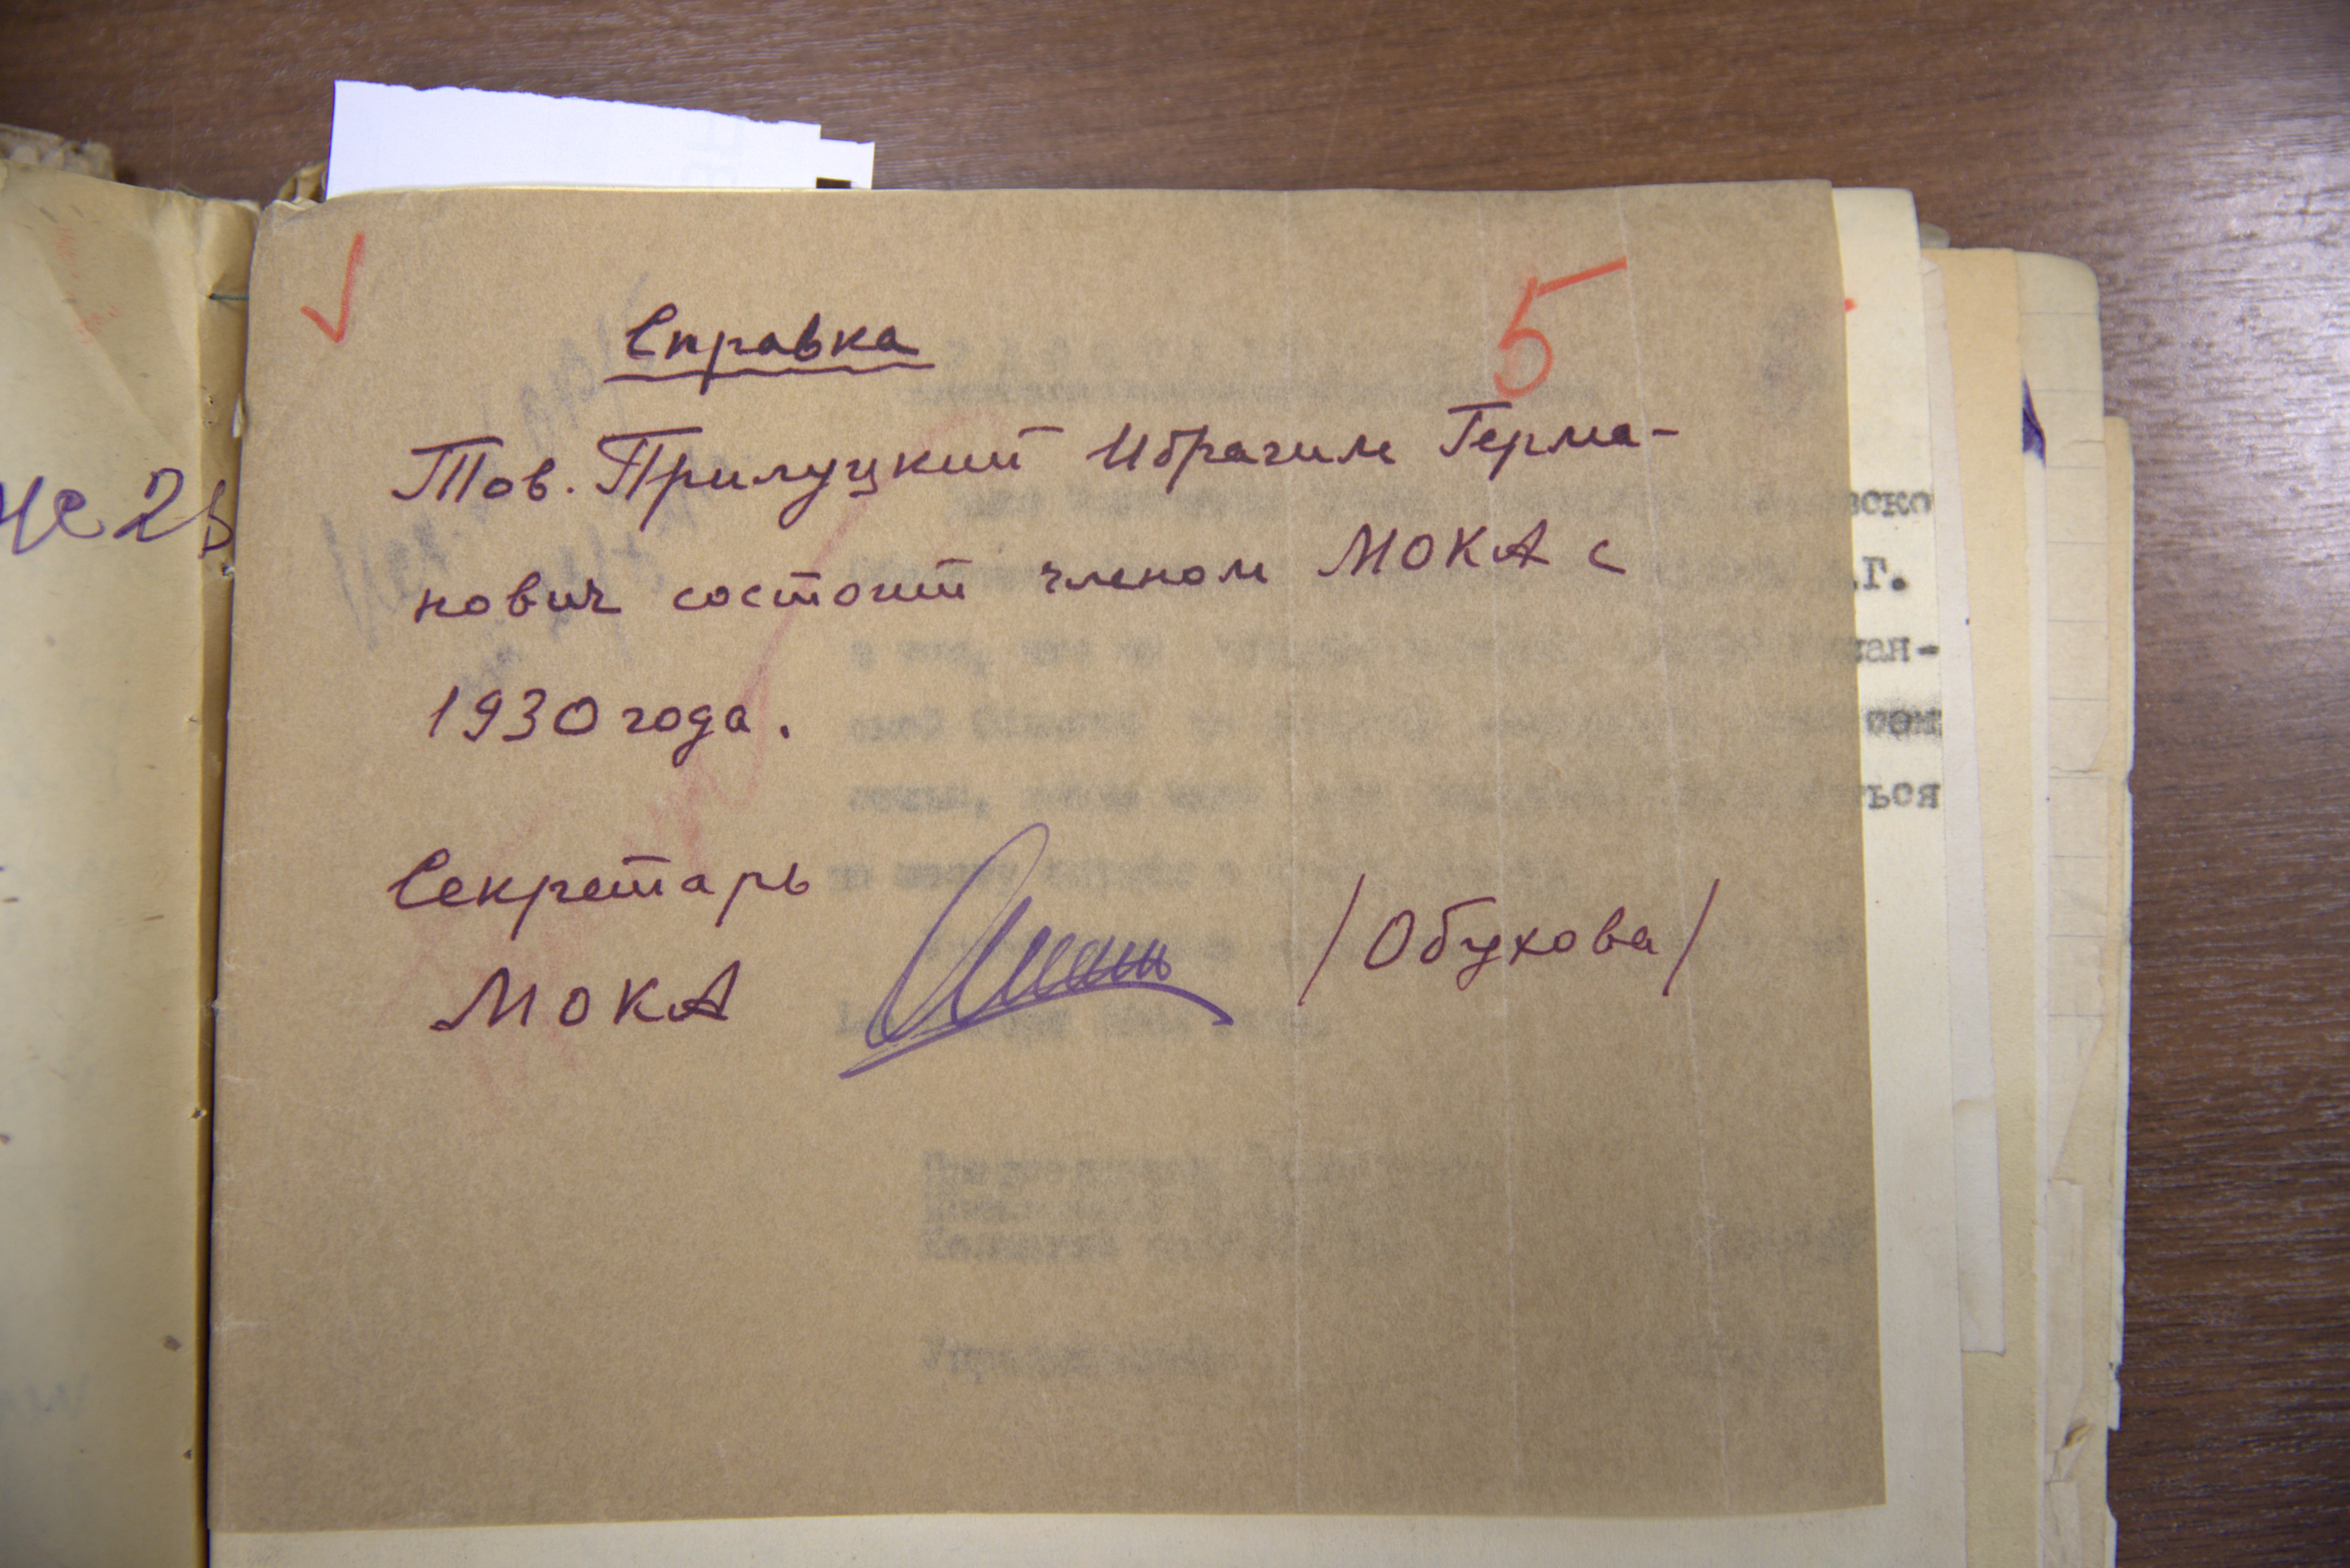 5
Справка
Тов. Прилуцкий Ибрагим Герма-
нович состоит членом МОКА с
1930 года.
Секретарь
МОКА /Обухова/
вско
.Г.
ан-
ться